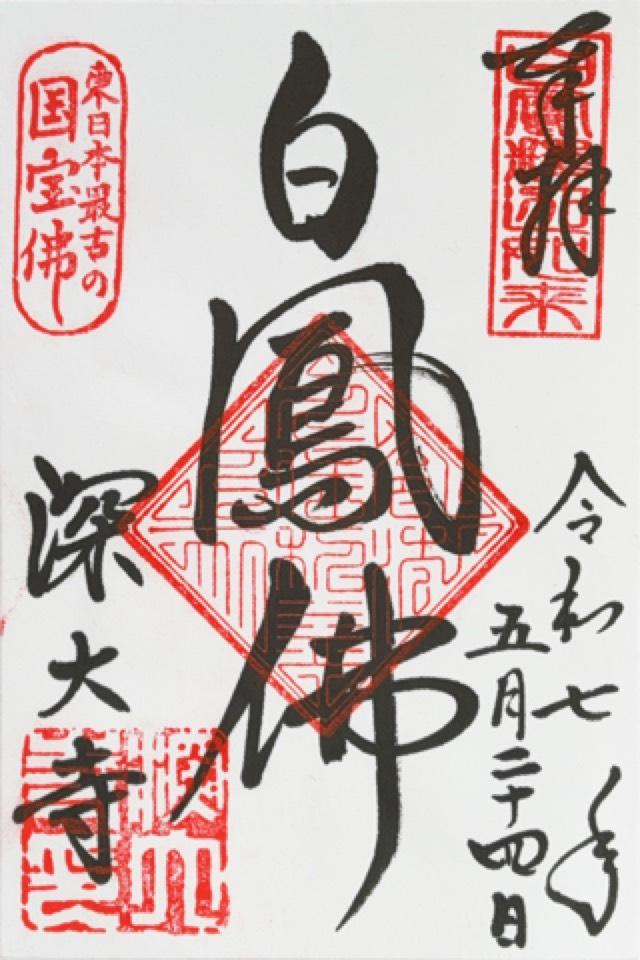 奉拝
令和七年
五月二十四日
白鳳佛
東日本最古の
国宝佛
深大寺